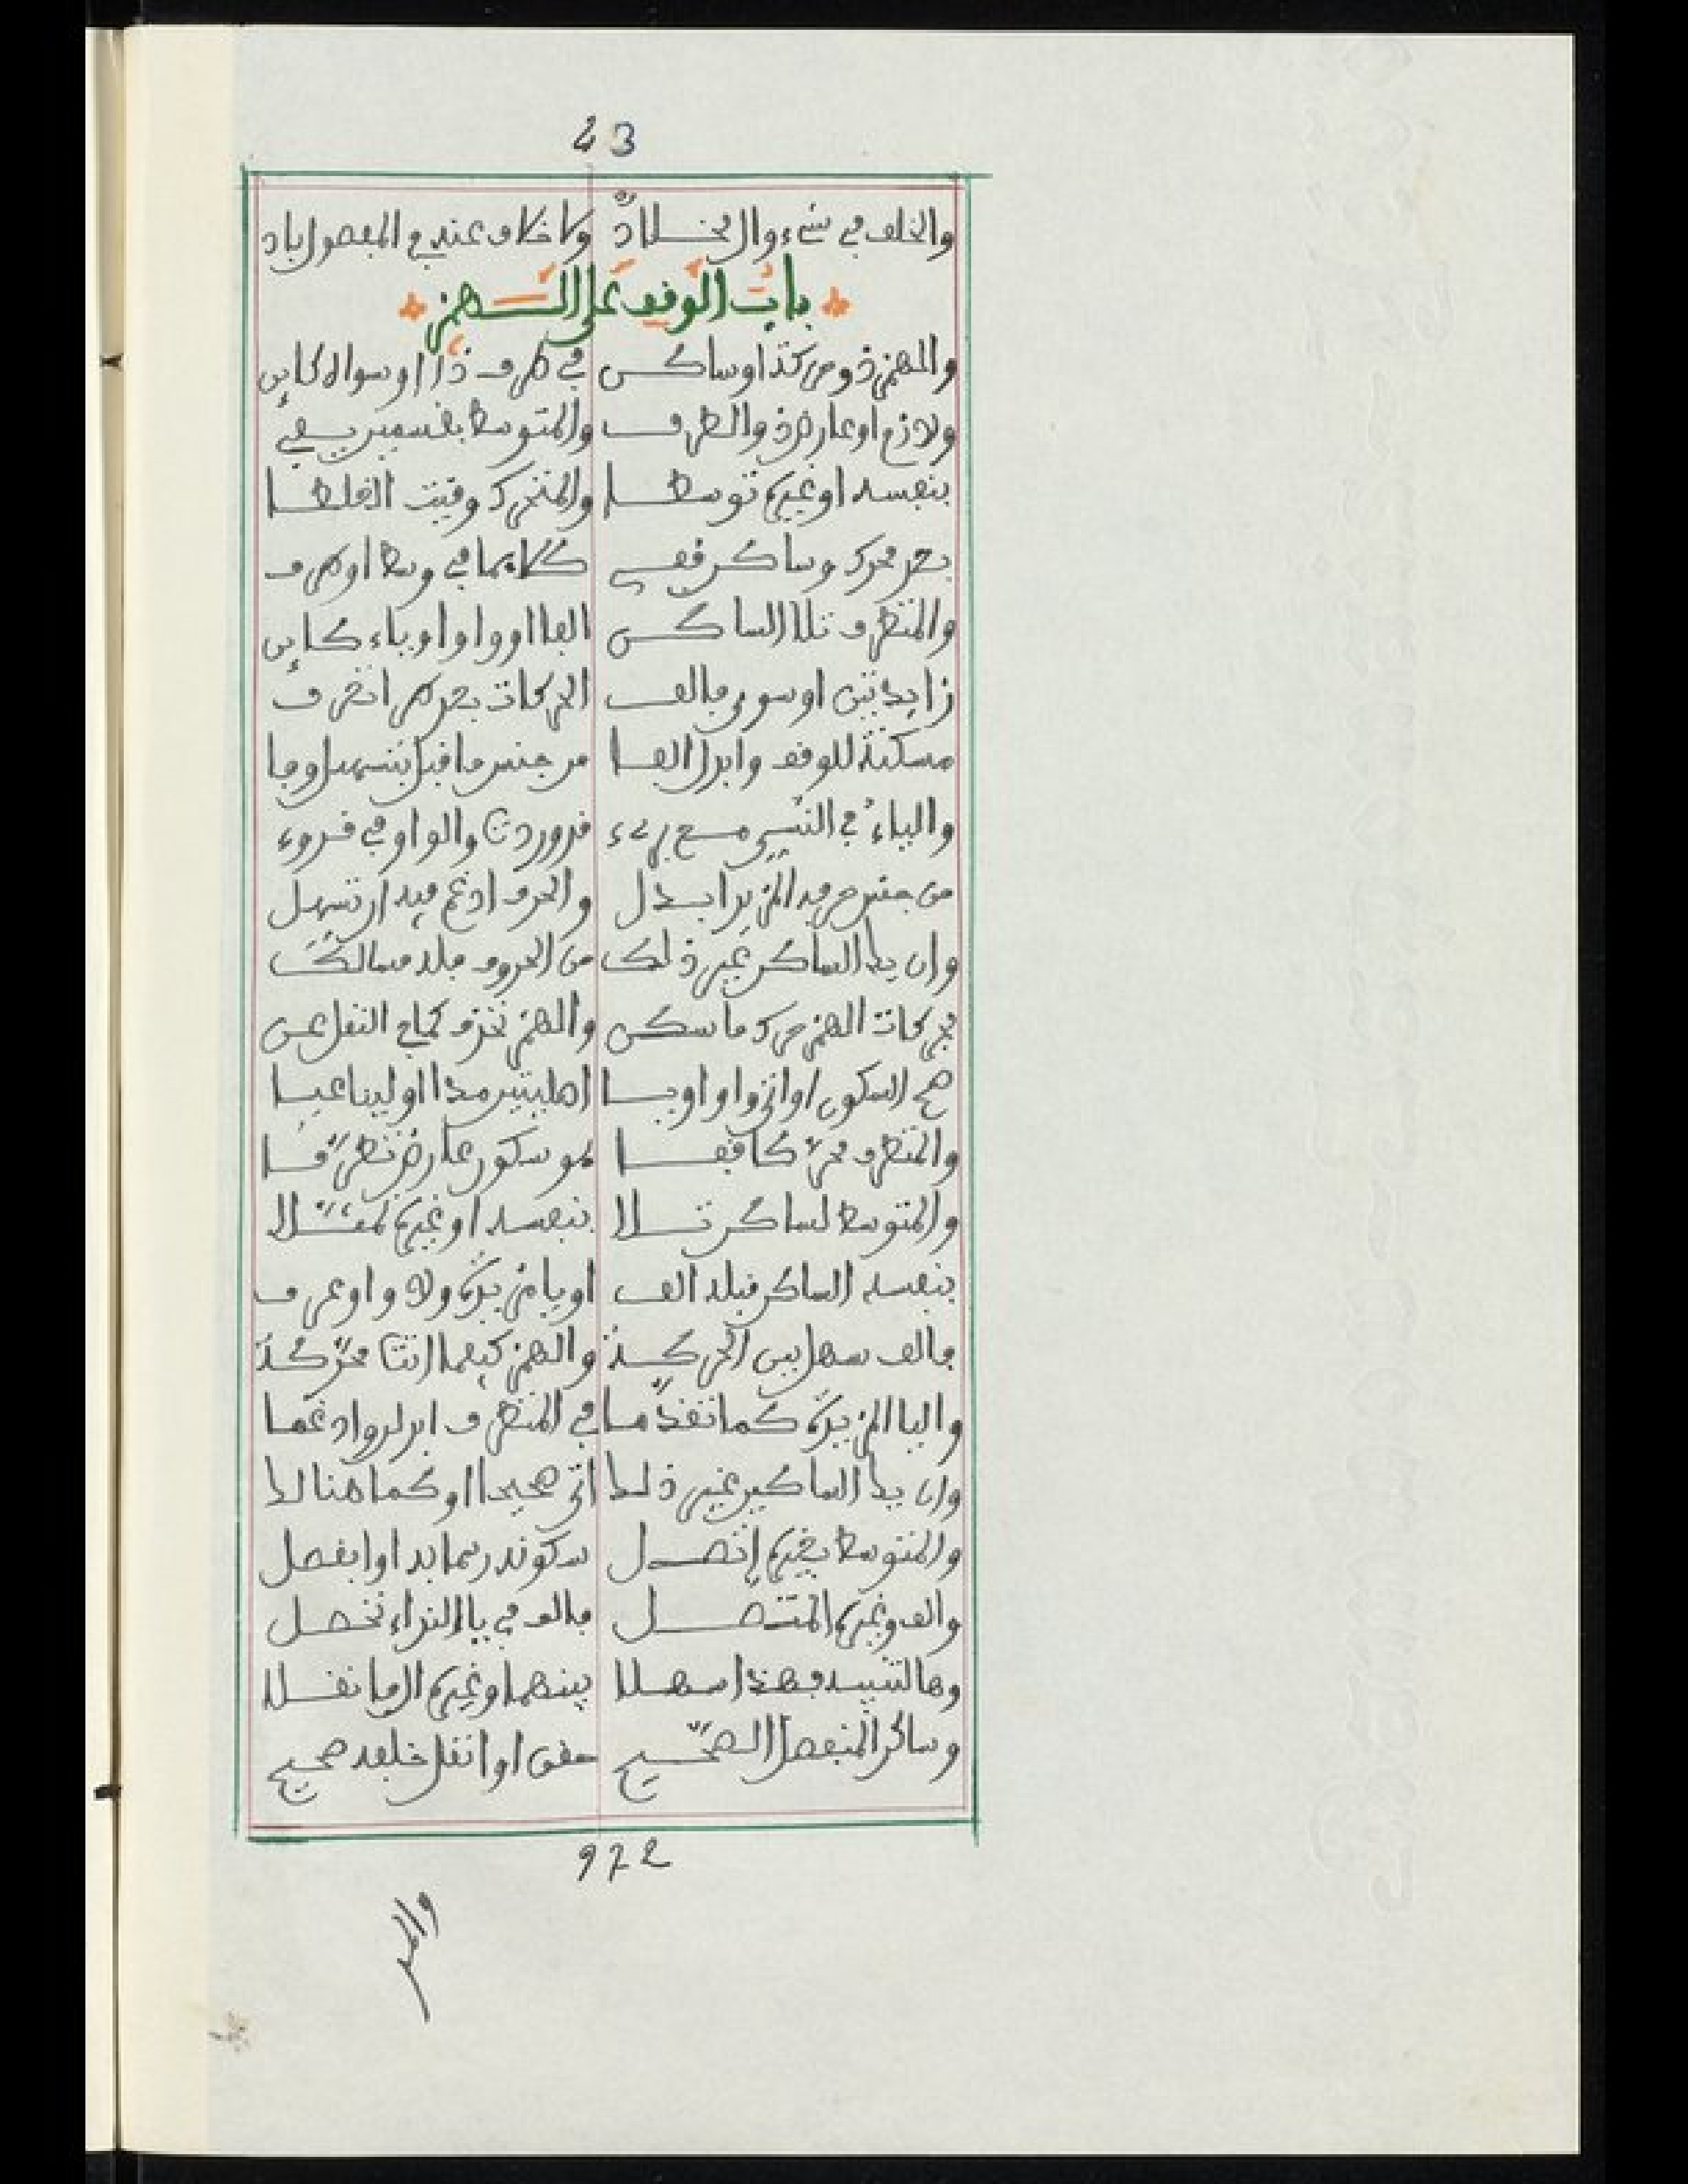 43
والخلف في شيء وال لخلاد ولا خلاف عنه في المفصول باد
باب الوقف على الهمز
والهمز ذو حركة او ساكن في طرف ذا او سواه كاين
ولازم او عارض ذو الطرف والمتوسط بقسمين يفي
بنفسه او غيره توسطا والمتحرك وقيت الغلطا
بعد محرك وساكن قفي كلاهما في وسط او طرف
والمتطرف تلا الساكن الفا او واوا او ياء كاين
زايدتين او سوى فالف الحركات بعد طرا تنحرف
مسكنة للوقف وابدل الفا من جنس ما قبل بتسهيل وفا
والياء في النسيء مع بريء قد وردت والواو في قروء
من جنس حرفه المزيد ابدل والحرف ادغم فيه ان تسهل
وان يك الساكن غير ذلك من الحروف فله مسالك
بحركات الهمز حرك ما سكن والهمز تحذف كما في النقل عن
صح السكون او اتى واوا ويا اصليتين مدا او لينا عيا
والمتطرف محركا قفا هو سكون عارض تطرفا
والمتوسط لساكن تلا بنفسه او غيره تمثلا
بنفسه الساكن قبله الف او يا مزيدة ولا واو عرف
فالف سهل بين الحركة والهمز كيفما اتتا محركة
واليا المزيدة كما تقدما في المتطرف ابدلن وادغما
وان يك الساكن غير ذلك اتى صحيحا او كما هنالك
والمتوسط بغيره اتصل سكونه رسما به او انفصل
والف وغيره المتصل فالف في يا النداء تحصل
وها لتنبيه فهذا سهلا بينهما وغيره ال ما نقلا
وساكن المنفصل الصحيح حقق او انقل خلفه صحيح
972
والمد